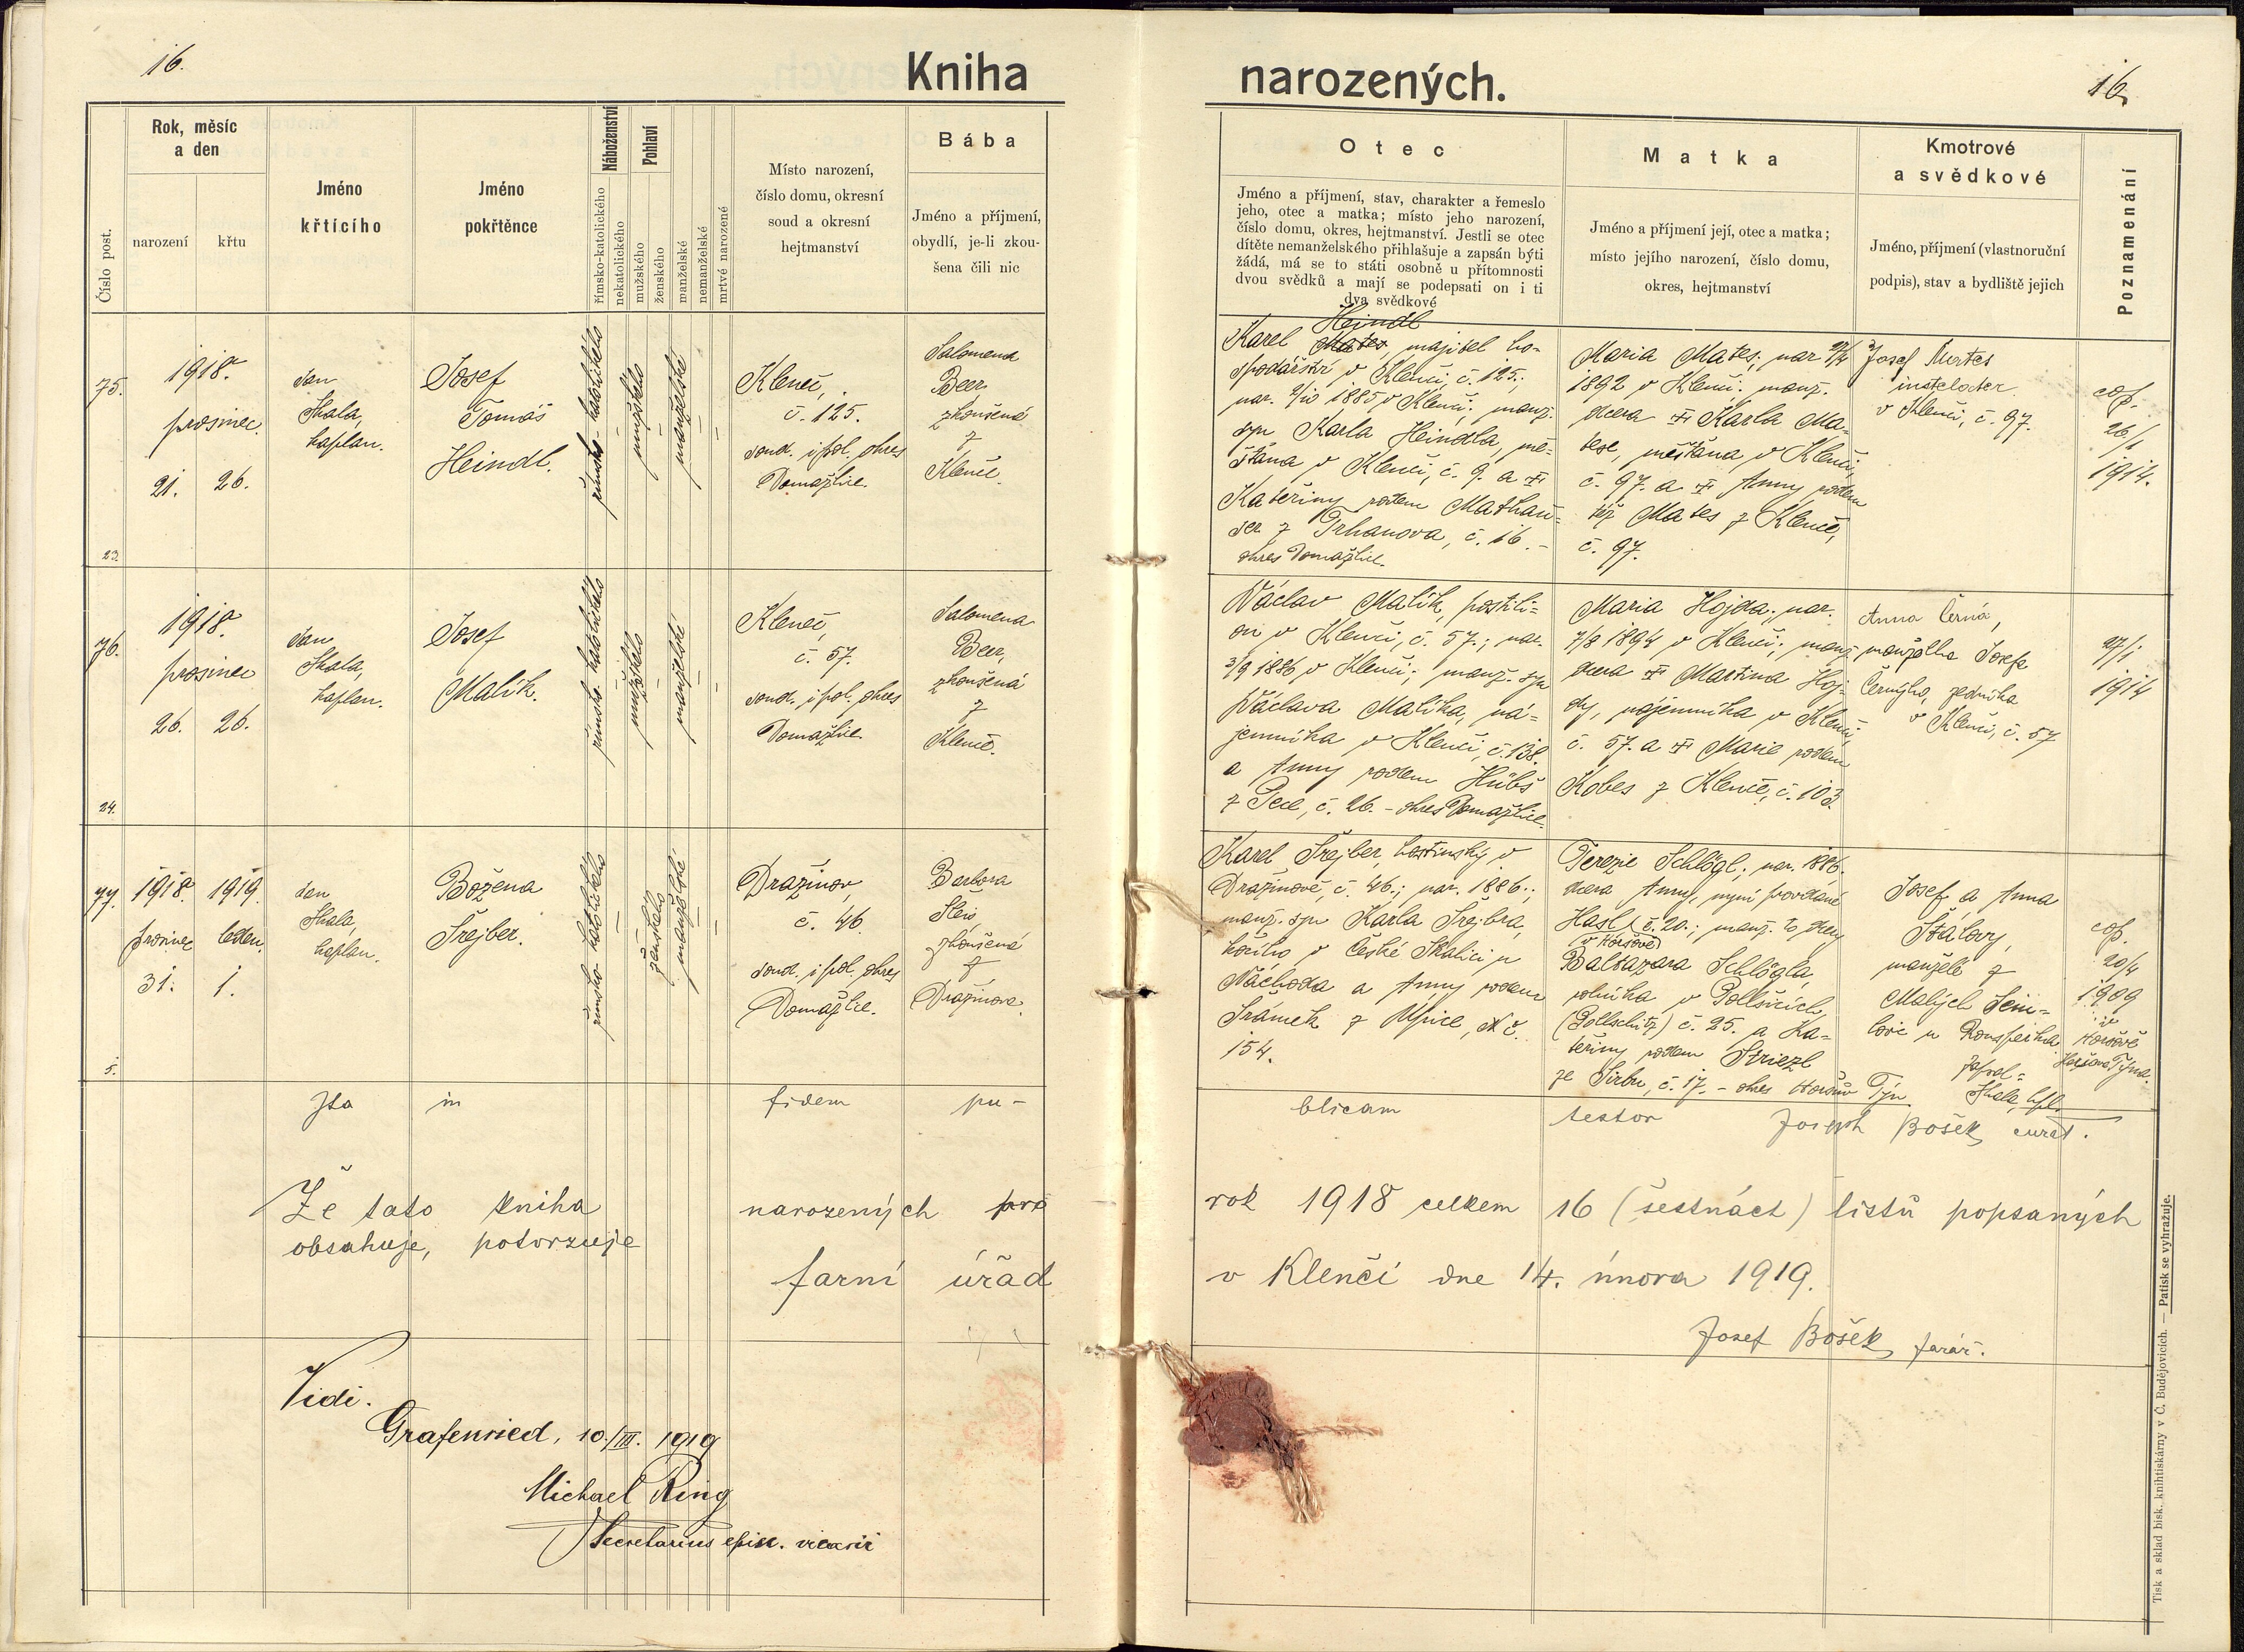 16.
Kniha narozených.
16.
Číslo post.
Rok, měsíc
a den
narození
křtu
Jméno
křtícího
Jméno
pokřtěnce
Náboženství
římsko-katolického
nekatolického
Pohlaví
mužského
ženského
manželské
nemanželské
mrtvě narozené
Místo narození,
číslo domu, okresní
soud a okresní
hejtmanství
Bába
Jméno a příjmení,
obydlí, je-li zkou-
šena čili nic
Otec
Jméno a příjmení, stav, charakter a řemeslo
jeho, otec a matka; místo jeho narození,
číslo domu, okres, hejtmanství. Jestli se otec
dítěte nemanželského přihlašuje a zapsán býti
žádá, má se to státi osobně u přítomnosti
dvou svědků a mají se podepsati on i ti
dva svědkové
Matka
Jméno a příjmení její, otec a matka;
místo jejího narození, číslo domu,
okres, hejtmanství
Kmotrové
a svědkové
Jméno, příjmení (vlastnoruční
podpis), stav a bydliště jejich
Poznamenání
75.
1918.
prosinec.
21. 26.
23.
Jan
Skala,
kaplan.
Josef
Tomáš
Heindl.
římsko-katolického
mužského
manželské
Kleneč,
č. 125.
soud. i pol. okres
Domažlice.
Salomena
Beer,
zkoušená
z
Klenče.
Heindl
Karel Mates, majitel ho-
spodářství v Klenči, č. 125.;
nar. 9/10 1885 v Klenči; manž.
syn Karla Heindla, mě-
šťana v Klenči, č. 9. a
Kateřiny rodem Mathau-
ser z Trhanova, č. 16. -
okres Domažlice.
Maria Mates; nar.
1892 v Klenči; manž.
dcera Karla Ma-
tese, měšťana v Klenči,
č. 97. a Anny rodem
též Mates z Klenče,
č. 97.
Josef
v Klenči, č. 97.
cop.
26/1
1914.
76.
1918.
prosinec
26. 26.
24.
Jan
Skala,
kaplan.
Josef
Malík.
římsko-katolického
mužského
manželské
Kleneč,
č. 57.
soud. i pol. okres
Domažlice.
Salomena
Beer,
zkoušená
z
Klenče.
Václav Malík, postili-
on v Klenči, č. 57.; nar.
3/9 1886 v Klenči; manž. syn
Václava Malíka, ná-
jemníka v Klenči, č. 138.
a Anny rodem Hübš
z Pece, č. 26. - okres Domažlice.
Maria Hojda; nar.
7/8 1894 v Klenči; manž.
dcera Martina Hoj-
dy, nájemníka v Klenči,
č. 57. a Marie rodem
Kobes z Klenče, č. 103.
Anna Černá,
manželka Josefa
Černýho, zedníka
v Klenči, č. 57
27/1
1914
77.
1918. 1919.
prosinec leden.
31. 1.
5.
Jan
Skala,
kaplan.
Božena
Šrejber.
římsko-katolického
ženského
manželské
Dražinov,
č. 46.
soud. i pol. okres
Domažlice.
Barbora
Sleis,
zkoušená
z
Dražinova.
Karel Šrejber, hostinský v
Dražinově, č. 46.; nar. 1886.;
manž. syn Karla Šrejbra,
v České Skalici u
Náchoda a Anny rodem
Šrámek z Úpice, č.
154.
Terezie Schlögl; nar. 1886.
dcera Anny, nyní provdané
Hasl č. 20.; manž. to dcery
v
Baltazara Schlögla,
rolníka v Polžicích
(Pollschitz) č. 25. a Ka-
teřiny rodem Striezl
ze Sirbu, č. 17. - okres Horšův Týn.
Josef a Anna
Šťálovy,
manželé z
Malých Sem-
lovic u Ronšperka
Skala, kpl.
cop.
20/4
1909
Ita in fidem pu-
blicam testor Joseph Bošek curat.
Že tato kniha narozených pro rok 1918 celkem 16 (šestnáct) listů popsaných
obsahuje, potvrzuje
farní úřad v Klenčí dne 14. února 1919.
Josef Bošek farář.
Vidi.
Grafenried, 10./III. 1919
Michael Ring
Secretarius episc. vicarii
Tisk a sklad bisk. knihtiskárny v Č. Budějovicích. — Patisk se vyhražuje.